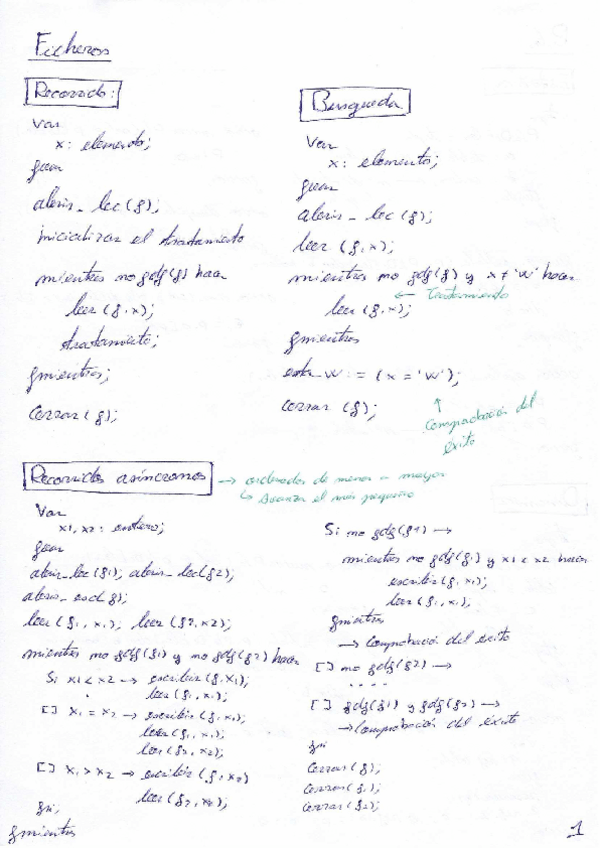 Ficheros
Recorrido:
var
x: elemento;
fvar
abrir_lec(f);
inicializar el tratamiento
mientras no fdf(f) hacer
leer (f,x);
tratamiento;
fmientras;
cerrar(f);
Busqueda
Var
x: elemento;
fvar
abrir_lec(f);
leer (f,x);
mientras no fdf(f) y x ≠ 'w' hacer
← Tratamiento
leer (f,x);
fmientras
esta_w := (x = 'w');
cerrar (f);
↑
Comprobación del
éxito
Recorridos asíncronos → ordenados de menor a mayor
↳ Avanza el más pequeño
Var
x1, x2: entero;
fvar
abrir_lec(f1); abrir_lec(f2);
abrir_esc(f);
leer (f1, x1); leer (f2, x2);
mientras no fdf(f1) y no fdf(f2) hacer
Si x1 < x2 → escribir (f, x1);
leer (f1, x1);
[] x1 = x2 → escribir (f, x1);
leer (f1, x1);
leer (f2, x2);
[] x1 > x2 → escribir (f, x2)
leer (f2, x2);
fsi;
fmientras
Si no fdf(f1) →
mientras no fdf(f1) y x1 < x2 hacer
escribir (f, x1);
leer (f1, x1);
fmientras
→ Comprobación del éxito
[] no fdf(f2) →
....
[] fdf(f1) y fdf(f2) →
→ Comprobación del éxito
fsi
cerrar (f);
cerrar (f1);
cerrar (f2);
1